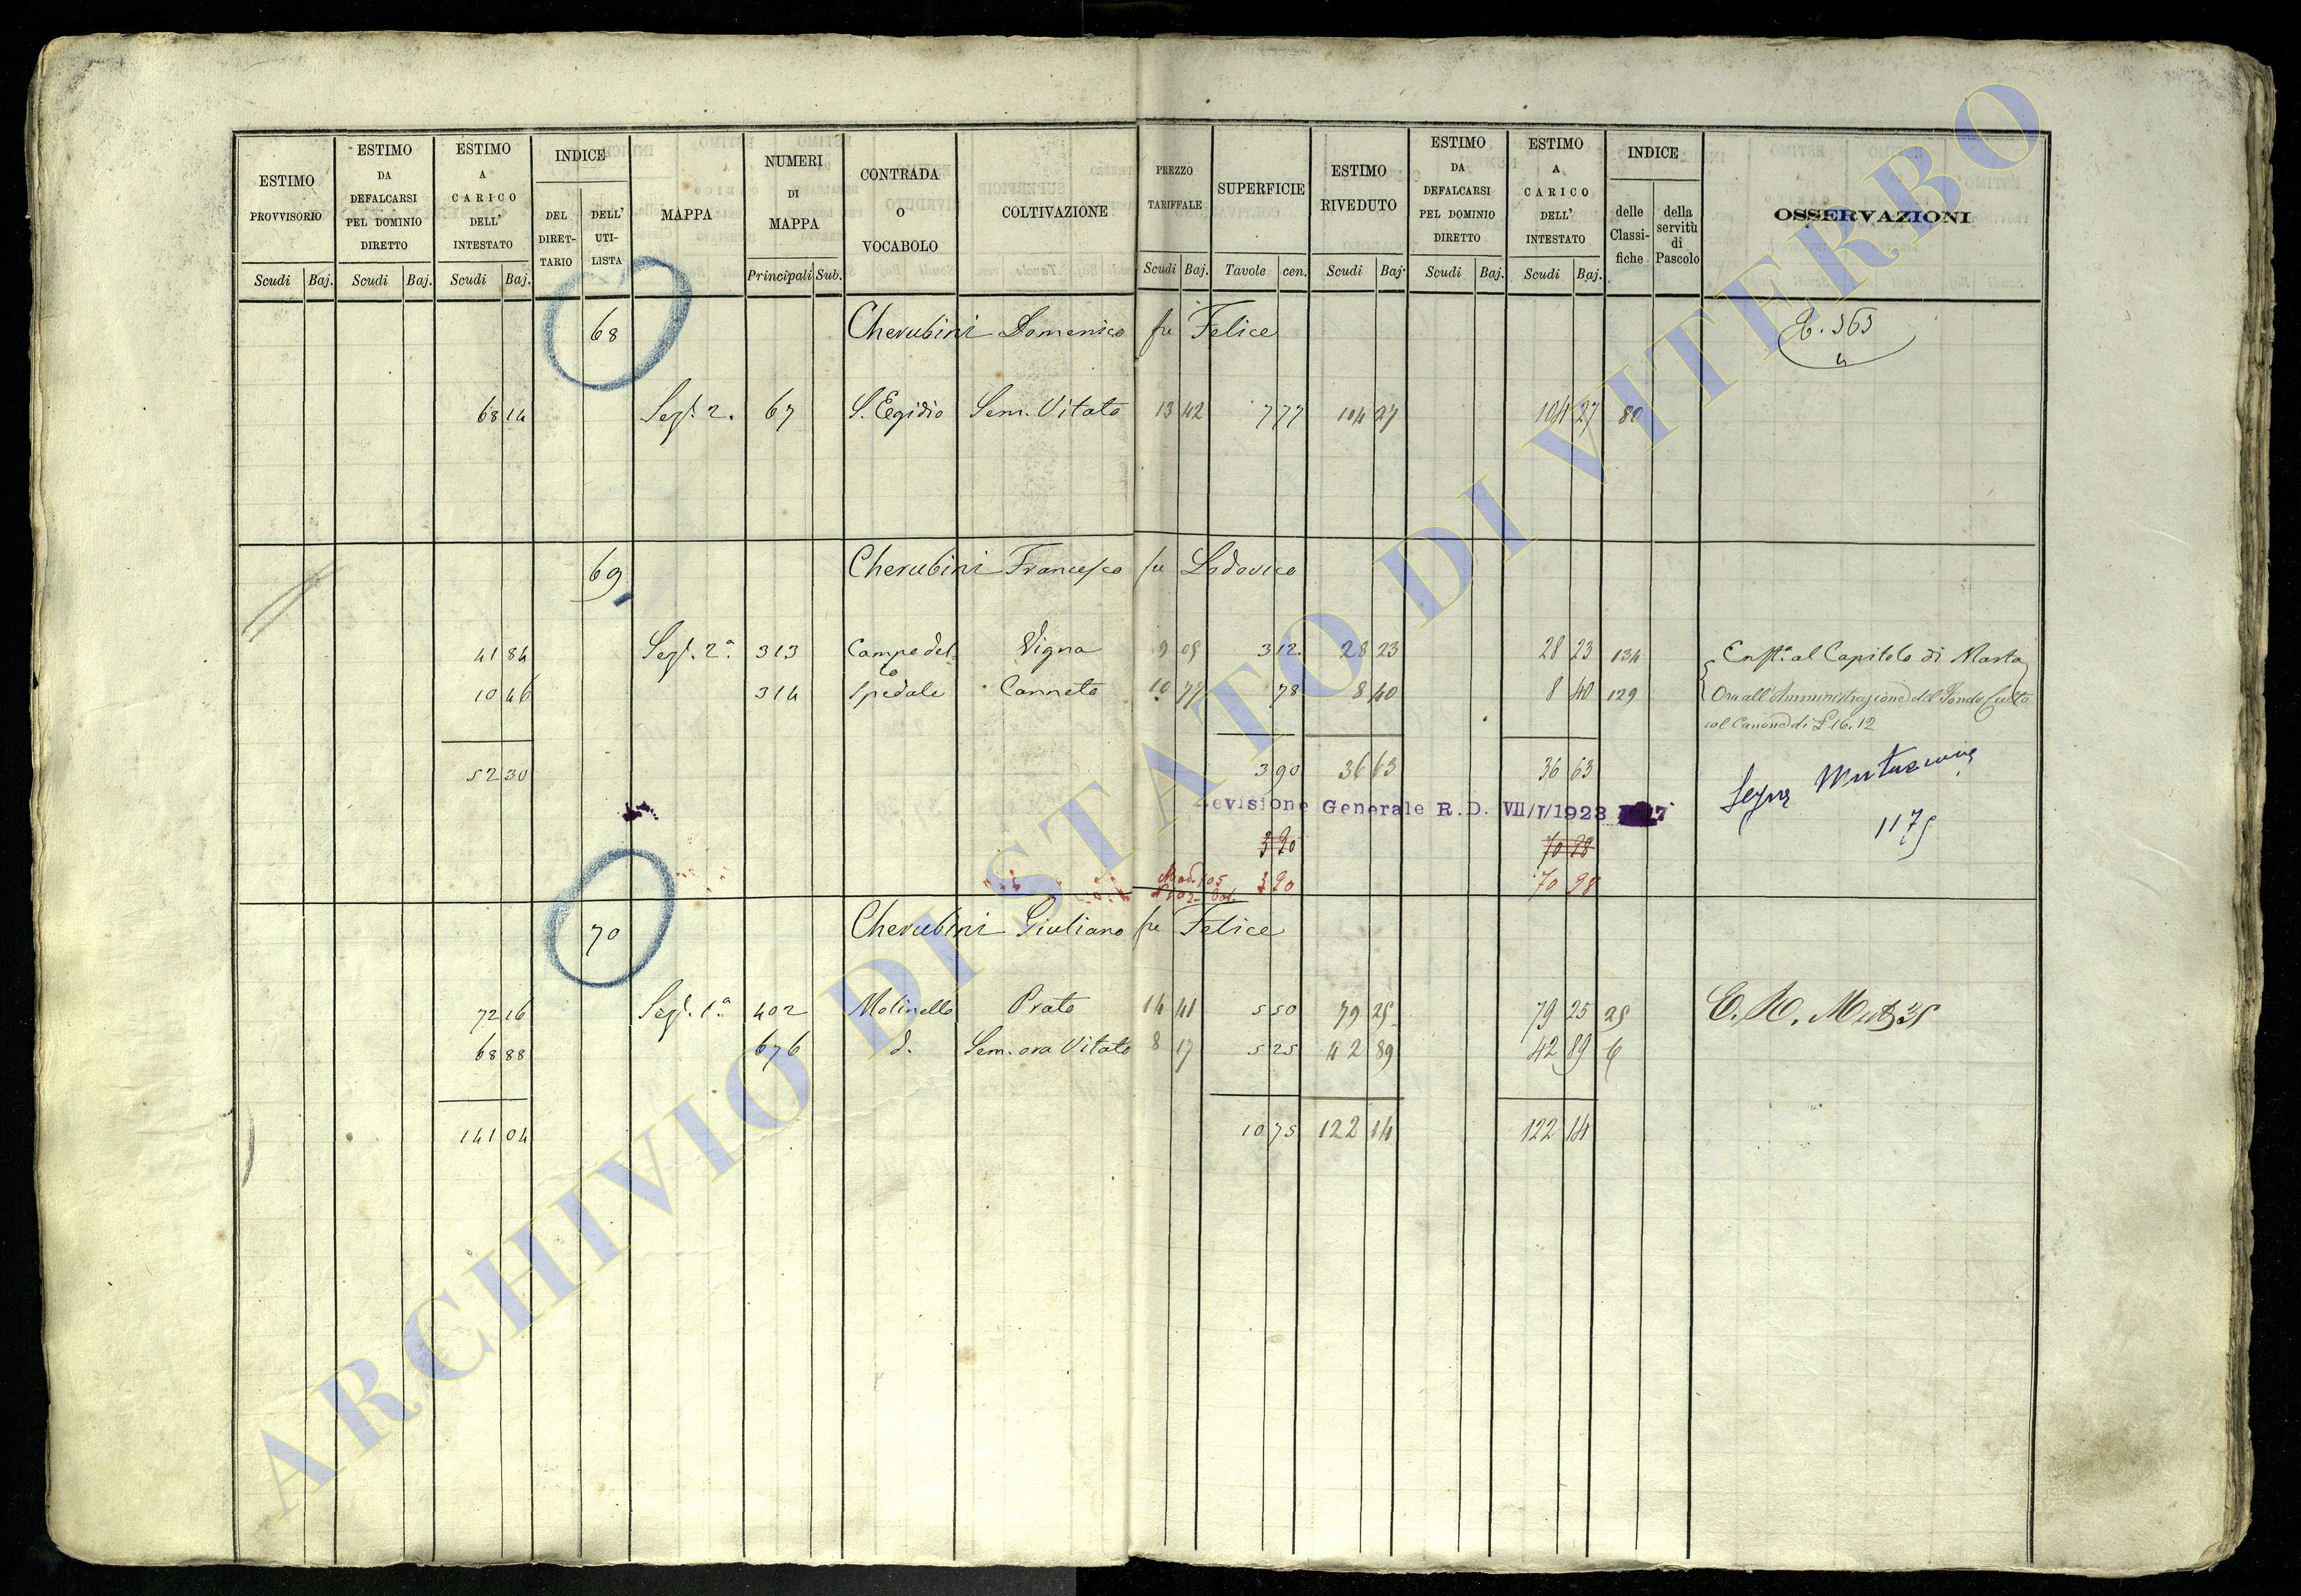 ESTIMO PROVVISORIO Scudi Baj.
ESTIMO DA DEFALCARSI PEL DOMINIO DIRETTO Scudi Baj.
ESTIMO A CARICO DELL' INTESTATO Scudi Baj.
INDICE DEL DIRET-TARIO DELL' UTI-LISTA
MAPPA
NUMERI DI MAPPA Principali Sub.
CONTRADA O VOCABOLO
COLTIVAZIONE
PREZZO TARIFFALE Scudi Baj.
SUPERFICIE Tavole cen.
ESTIMO RIVEDUTO Scudi Baj.
ESTIMO DA DEFALCARSI PEL DOMINIO DIRETTO Scudi Baj.
ESTIMO A CARICO DELL' INTESTATO Scudi Baj.
INDICE delle Classi-fiche della servitù di Pascolo
OSSERVAZIONI
68 Cherubini Domenico fu Felice 363
68 14 Sez. 2. 67 S. Egidio Sem. Vitato 13 42 7 77 104 27 104 27 80
69 Cherubini Francesco fu Lodovico
41 84 Sez. 2ª 313 Campo del lo Vigna 9 05 3 12 28 23 28 23 134 Enft. al Capitolo di Marta
10 46 314 Spedale Canneto 10 77 78 8 40 8 40 129 Ora all'Amministrazione del Fondo Culto
col Canone di £. 16.12
52 30 3 90 36 63 36 63 Segue Mutazione
Revisione Generale R.D. VII/I/1923 17 1175
3 90 70 98
3 90 70 98
70 Cherubini Giuliano fu Felice
72 16 Sez. 1ª 402 Molinello Prato 14 41 5 50 79 25 79 25 25
68 88 676 d. Sem. ora Vitato 8 17 5 25 42 89 42 89 6
141 04 10 75 122 14 122 14
ARCHIVIO DI STATO DI VITERBO